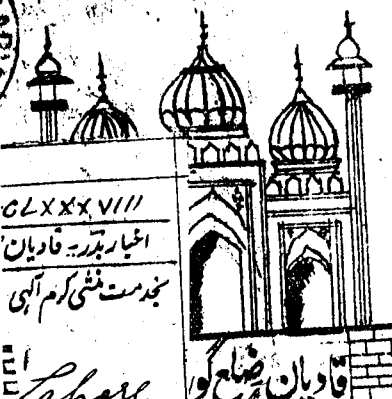 CLXXXVIII
اخبار بدر۔ قادیان
بخدمت منشی کرم آلہی
Lahore
قادیان ضلع گو